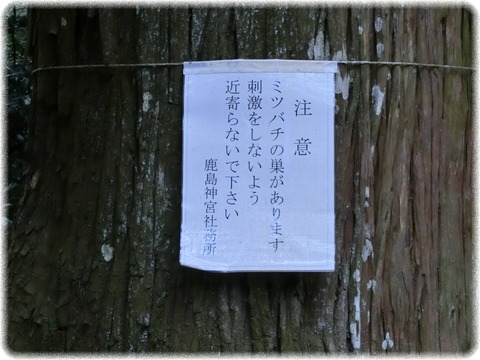 注意
ミツバチの巣があります
刺激をしないよう
近寄らないで下さい
鹿島神宮社務所